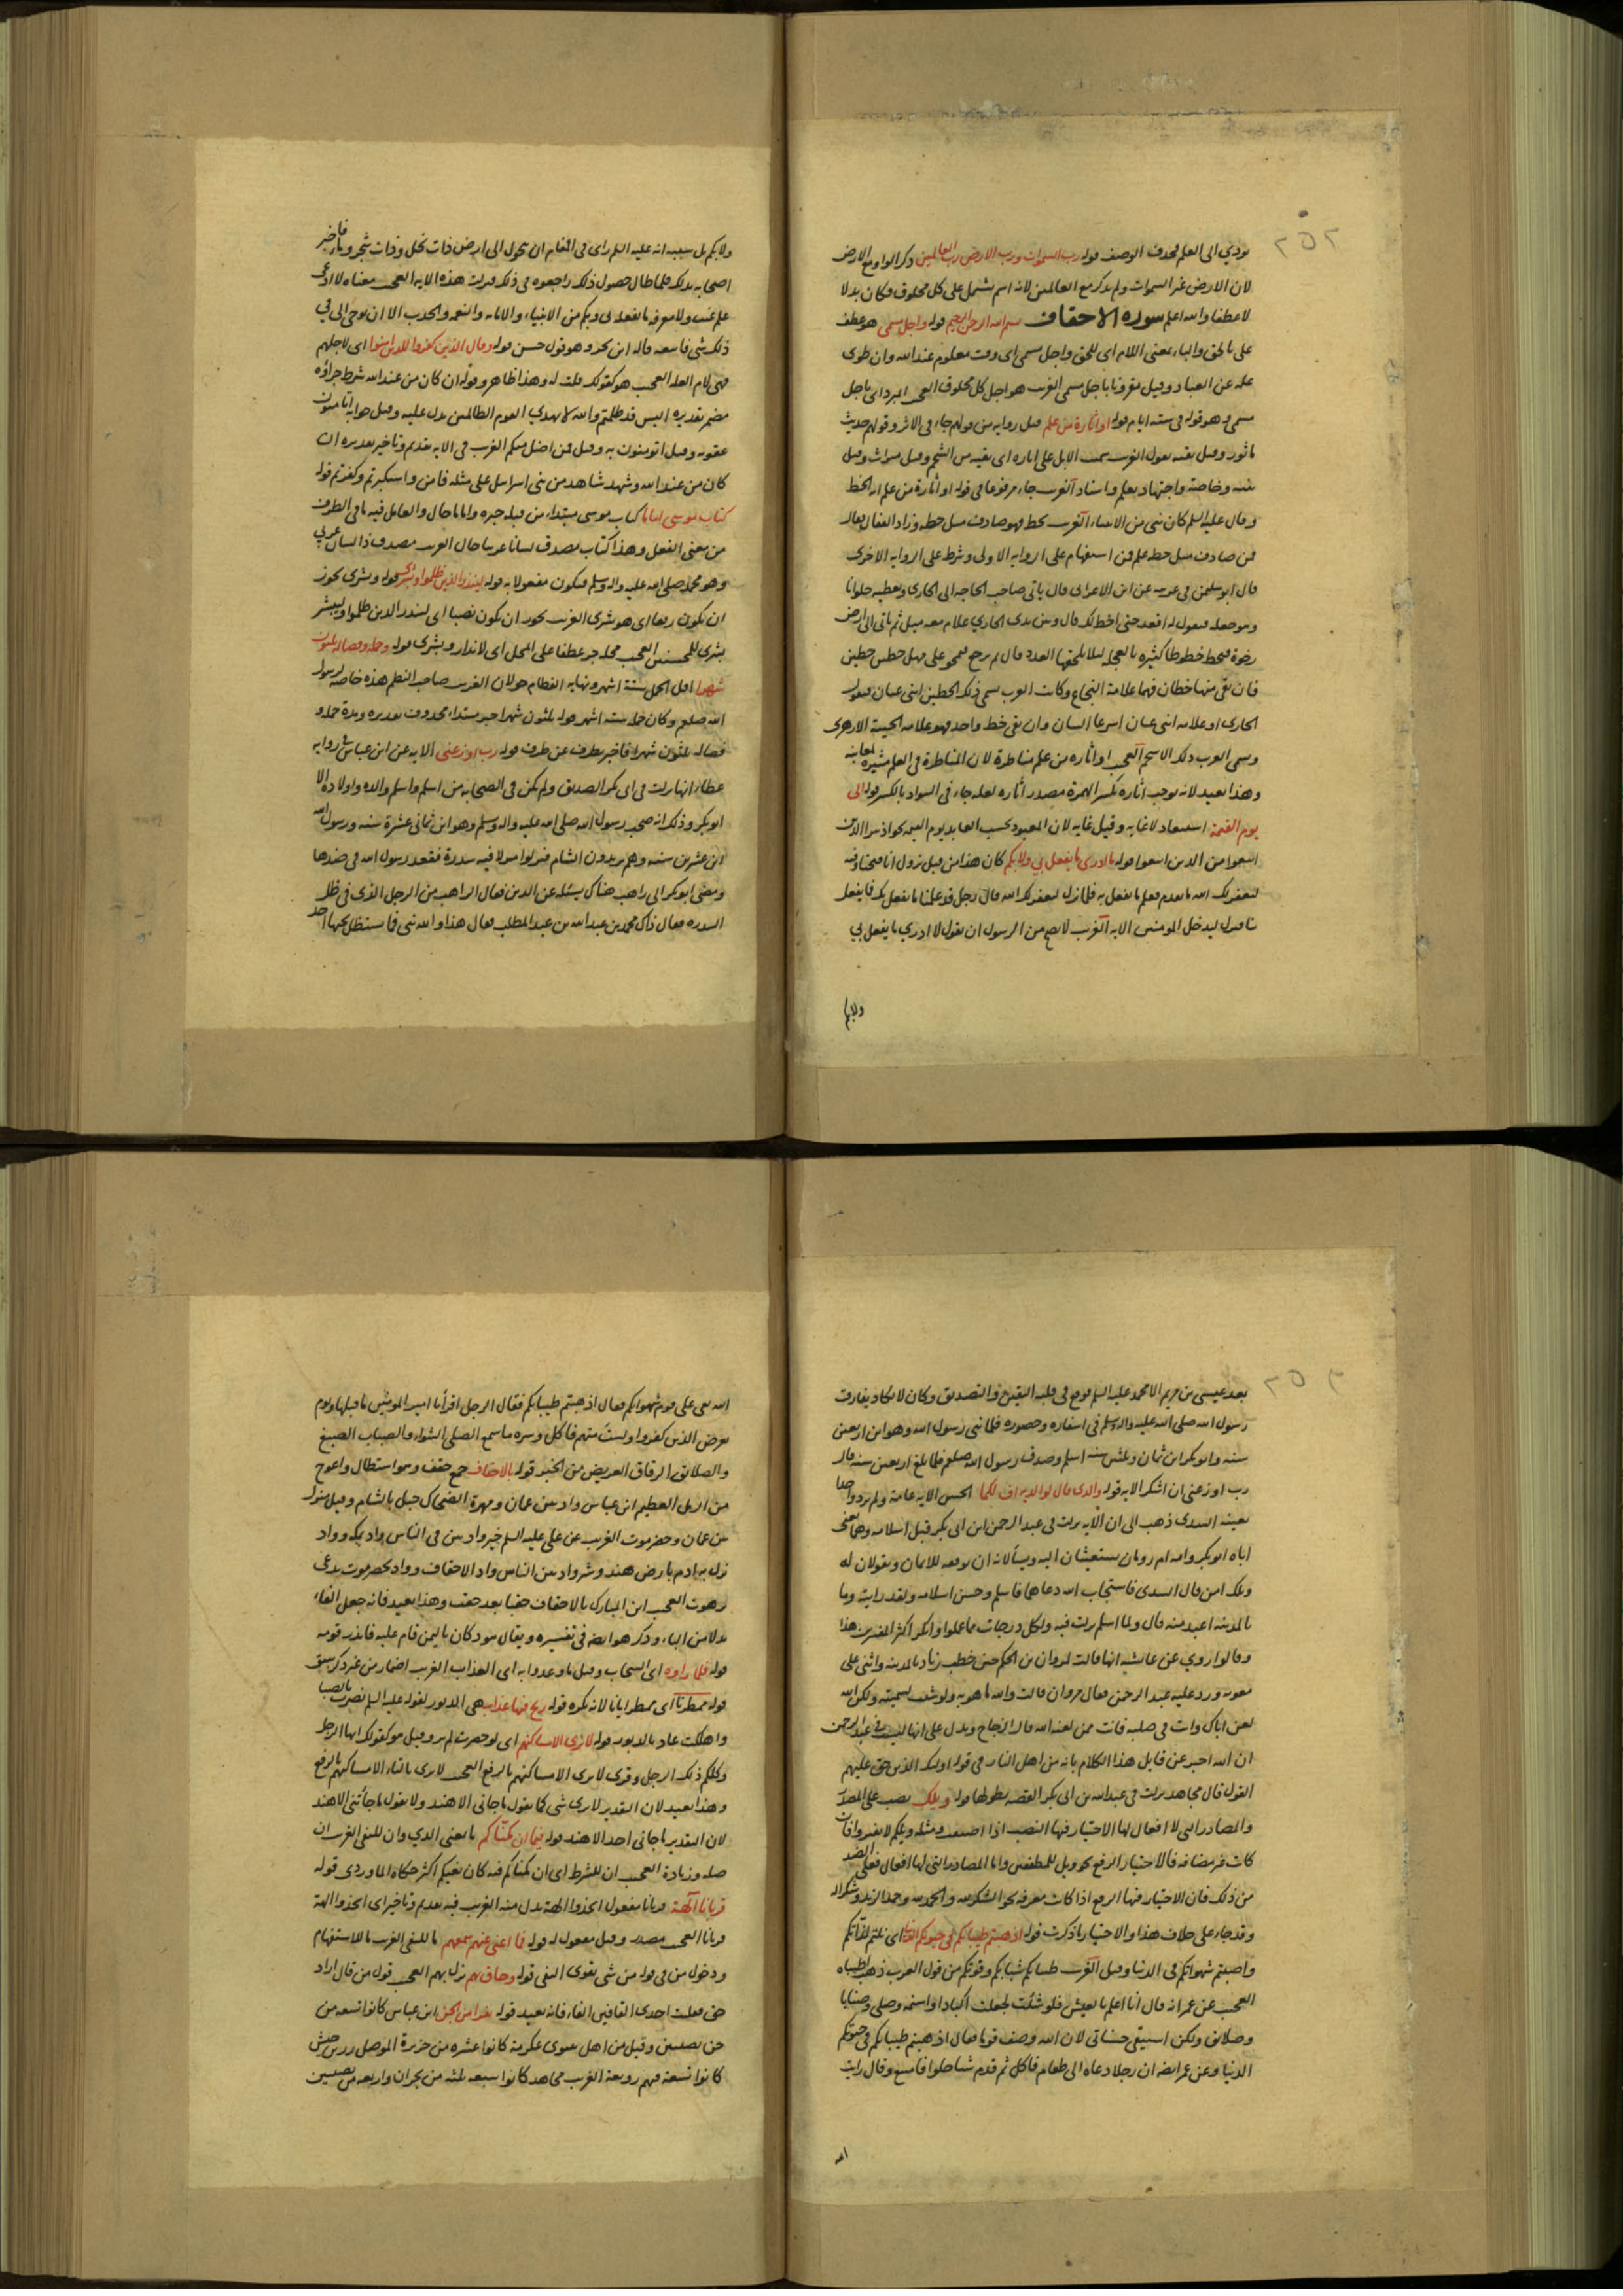 ٢٥٢
يودي الى العلم فحذف الوصف قوله رب السموات ورب الارض رب العالمين ذكر الواو مع الارض
لان الارض غير السموات ولم يذكر مع العالمين لانه اسم يشتمل على كل مخلوق فكان بدلا
لا عطفا والله اعلم سورة الاحقاف بسم الله الرحمن الرحيم قوله واجل مسمى هو عطف
على بالحق والباء بمعنى اللام اى للحق واجل مسمى اى وقت معلوم عند الله وان طوى
علمه عن العباد وقيل مقرونا باجل مسمى الغريب هو اجل كل مخلوق العجيب المبرد اى باجل
مسمى وهو قوله فى ستة ايام قوله او اثارة من علم قيل رواية من قولهم جاء فى الاثر وقولهم حديث
ماثور وقيل بقية يقول العرب سمنت الابل على اثاره اى بقية من الشحم وقيل ميراث وقيل
بينة وخاصة واجتهاد بعلم واسناد الغريب جاء مرفوعا فى قوله او اثارة من علم انه الخط
وقال عليه السلم كان نبى من الانبياء الغريب يخط فمن صادف مثل خطه وزاد القفال فقال
فمن صادف مثل خطه علم فمن استفهام على الرواية الاولى وشرط على الرواية الاخرى
قال ابو سليمن فى غريبه عن ابن الاعرابى قال ياتى صاحب الحاجة الى الحازى ويعطيه حلوانا
وهو جعله فيقول له اقعد حتى اخط لك قال وبين يدى الحازي غلام معه ميل ثم ياتى الى ارض
رخوة فيخط خطوطا كثيره بالعجلة ليلا يلحقها العدد قال ثم يرجع فيمحو على مهل خطين خطين
فان بقى منها خطان فهما علامة النجاح وكانت العرب يسمى ذلك الخطين ابنى عيان فيقول
الحازى او غلامه ابنى عيان اسرعا البيان وان بقى خط واحد فهو علامه الخيبة الازهرى
وسمى العرب ذلك الاسحم العجيب او اثاره من علم مناظرة لان المناظرة فى العلم مثيره لمعانيه
وهذا بعيد لانه يوجب اثارة بكسر الهمزة مصدر اثاره لعله جاء فى السواد بالكسر قوله الى
يوم القيمة استبعاد لا غايه وقيل غايه لان المعبود يحسب العابد يوم القيمة نحو اذ تبرا الذين
اتبعوا من الذين اتبعوا قوله ما ادرى ما يفعل بي ولا بكم كان هذا من قبل نزول انا فتحنا وفيه
ليغفر لك الله ما تقدم فعلم ما يفعل به فلما نزل ليغفر لك الله قال رجل قد علمنا ما يفعل بك فما يفعل
بنا فنزل ليدخل المومنين الايه الغريب لا يصح من الرسول ان يقول لا ادري ما يفعل بي
ولا بكم
ولا بكم بل سببه انه عليه السلم راى فى المنام ان تحول الى ارض ذات نخل وذات شجر وماء فاخبر
اصحابه بذلك فلما طال حصول ذلك راجعوه فى ذلك فنزلت هذه الايه العجيب معناه لا ادعى
علم غيب ولا معرفه ما يفعله بى وبكم من الاحياء والاماته والنعمه والجدب الا ان يوحى الى فى
ذلك شى فاتبعه قاله ابن بحر وهو قول حسن قوله وقال الذين كفروا للذين امنوا اى لاجلهم
فهى لام العلة العجيب هو كقولك قلت له وهذا ظاهر وقوله ان كان من عند الله شرط جزاؤه
مضمر تقديره اليس قد ظلمتم والله لا يهدي القوم الظالمين يدل عليه وقيل جوابه اتامنون
عقوبه وقيل اتومنون به وقيل فمن اضل منكم الغريب فى الايه تقديم وتاخير تقديره ان
كان من عند الله وشهد شاهد من بنى اسرايل على مثله فامن واستكبرتم وكفرتم قوله
كتاب موسى اماما كتاب موسى مبتداء من قبله خبره واماما حال والعامل فيه ما فى الظرف
من معنى الفعل وهذا كتاب مصدق لسانا عربيا حال الغريب مصدق ذا لسان عربى
وهو محمد صلى الله عليه واله وسلم فيكون مفعولا به قوله لينذر الذين ظلموا وبشرى قوله وبشرى يجوز
ان يكون رفعا اى هو بشرى الغريب يجوز ان يكون نصبا اى لينذر الذين ظلموا وليبشر
بشرى للمحسنين العجيب محله جر عطفا على المحل اى لانذار وبشرى قوله وحمله وفصاله ثلثون
شهرا اقل الحمل ستة اشهر ونهايه الفطام حولان الغريب صاحب النظم هذه خاصة لرسول
الله صلعم وكان حمله سته اشهر قوله ثلثون شهرا خبر مبتداء محذوف تقديره ومدة حمله و
فصاله ثلثون شهرا فاخبر بظرف عن ظرف قوله رب اوزعنى الايه عن ابن عباس فى رواية
عطاء انها نزلت فى ابى بكر الصديق ولم يكن فى الصحابه من اسلم واسلم والده واولاده الا
ابو بكر وذلك انه صحب رسول الله صلى الله عليه واله وسلم وهو ابن ثمانى عشرة سنه ورسول الله
ابن عشرين سنه وهم يريدون الشام فنزلوا منزلا فيه سدرة فقعد رسول الله فى ظلها
ومضى ابو بكر الى راهب هناك يسئله عن الدين فقال الراهب من الرجل الذى فى ظل
السدره فقال ذاك محمد بن عبد الله بن عبد المطلب فقال هذا والله نبى فما ستظل تحتها احد
٢٥٣
بعد عيسى بن مريم الا محمد عليه السلم فوقع فى قلبه اليقين والتصديق وكان لا يكاد يفارق
رسول الله صلى الله عليه واله وسلم فى اسفاره وحضوره فلما نبى رسول الله وهو ابن اربعين
سنه وابو بكر ابن ثمان وثلثين سنه اسلم وصدق رسول الله صلعم فلما بلغ اربعين سنه قال
رب اوزعنى ان اشكر الايه قوله والذى قال لوالديه اف لكما الحسن الايه عامة ولم يرد واحدا
بعينه السدى ذهب الى ان الايه نزلت فى عبد الرحمن ابن ابى بكر قبل اسلامه وهما يعنى
اباه ابو بكر وامه ام رومان يستغيثان اليه ويسألانه ان يوفقه للايمان ويقولان له
ويلك امن قال السدى فاستجاب الله دعاهما فاسلم وحسن اسلامه ولقد رايته وما
بالمدينه اعبد منه قال ولما اسلم نزلت فيه ولكل درجات مما عملوا وانكر اكثر المفسرين هذا
وقالوا روي عن عائشه انها قالت لمروان بن الحكم حين خطب زياد بالمدينه واثنى على
معويه ورد عليه عبد الرحمن فقال مروان قالت والله ما هو به ولو شئت لسميته ولكن الله
لعن اباك وانت فى صلبه فانت ممن لعنه الله قال الزجاج ويدل على انها ليست فى عبد الرحمن
ان الله اخبر عن قايل هذا الكلام بانه من اهل النار فى قوله اولئك الذين حق عليهم
القول قال مجاهد نزلت فى عبد الله بن ابى بكر القصه بطولها قوله ويلك نصب على المصدر
والمصادر التى لا افعال لها الاختيار فيها النصب اذا اضيفت ومثله ويلكم لا تفتروا فان
كانت غير مضافه فالاختيار الرفع نحو ويل للمطففين واما المصادر التى لها افعال فعلى الضد
من ذلك فان الاختيار فيها الرفع اذا كانت معرفه نحو الشكر لله والحمد لله وحمدا لزيد وشكرا له
وقد جاء على خلاف هذا والاختيار ما ذكرت قوله اذهبتم طيباتكم فى حيوتكم الدنيا اى نلتم لذاتكم
واصبتم شهواتكم فى الدنيا وقيل الغريب طيباتكم شبابكم وقوتكم من قول العرب ذهب اطيباه
العجيب عن عمر انه قال انا اعلم بالعيش فلو شئت لجعلت اكبادا واسنمه وصلى وصنابا
وصلائق ولكن استبقى حسناتى لان الله وصف قوما فقال اذهبتم طيباتكم فى حيوتكم
الدنيا وعن عمر ايضه ان رجلا دعاه الى طعام فاكل ثم قدم شيئا حلوا فامتنع وقال رايت
الله
الله نعى على قوم شهواتهم فقال اذهبتم طيباتكم فقال الرجل اقرأ يا امير المومنين ما قبلها ويوم
يعرض الذين كفروا ولستَ منهم فاكل وسره ما سمع الصلى الشواء والصناب الصبغ
والصلائق الرقاق العريض من الخبز قوله بالاحقاف جمع حقف وهو استطال واعوج
من الرمل العظيم ابن عباس واد بين عمان ومهرة الضحاك جبل بالشام وقيل منزل
بين عمان وحضرموت الغريب عن على عليه السلم خير واديين فى الناس واد بمكه وواد
نزل به ادم بارض هند وشر واديين الناس واد الاحقاف وواد بحضرموت يدعى
برهوت العجيب ابن المبارك بالاحقاف حقبا بعد حقب وهذا بعيد فانه جعل الفاء
بدلا من الباء وذكر هو ايضه فى تفسيره ويقال هود كان باليمن قام عليه فانذر قومه
قوله فلما راوه اى السحاب وقيل ما وعدوا به اى العذاب الغريب اضمار من غير ذكر سبق
قوله ممطرنا اى ممطر ايانا لانه نكره قوله ريح فيها عذاب هى الدبور لقوله عليه السلم نصرت بالصبا
واهلكت عاد بالدبور قوله لا ترى الا مساكنهم اى لو حضرت لم تر وقيل هو كقولك ايها الرجل
وكلكم ذلك الرجل وقرى لا يرى الا مساكنهم بالرفع العجيب لا ترى بالتاء الا مساكنهم بالرفع
وهذا بعيد لان التقدير لا يرى شى كما يقول ما جانى الا هند ولا يقول ما جاءتنى الا هند
لان التقدير ما جانى احد الا هند قوله فيما ان مكناكم ما بمعنى الذي وان للنفى الغريب ان
صله وزيادة العجيب ان للشرط اى ان مكناكم فيه كان بغيكم اكثر حكاه الماوردى قوله
قربانا آلهة قربانا مفعول اتخذوا الهة بدل منه الغريب فيه تقديم وتاخير اى اتخذوا الهة
قربانا العجيب مصدر وقيل مفعول له قوله فما اغنى عنهم سمعهم ما للنفى الغريب ما للاستفهام
ودخول من فى قوله من شى يقوى النفى قوله وحاق بهم نزل بهم العجيب قول من قال اراد
حق فقلبت احدى القافين الفاء فانه بعيد قوله نفرا من الجن ابن عباس كانوا تسعه من
جن نصيبين وقيل من اهل نينوى عكرمة كانوا عشره من جزيرة الموصل زر بن حبيش
كانوا تسعة فيهم زوبعة الغريب مجاهد كانوا سبعه ثلثه من نجران واربعه من نصيبين